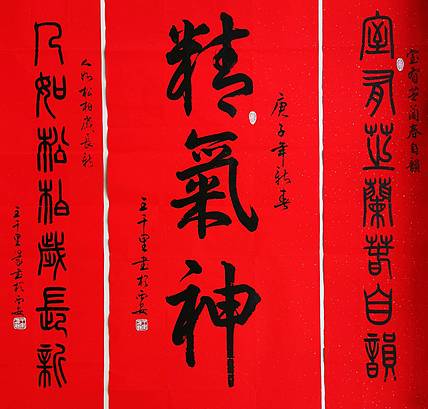 室有芝蘭春自韻
室有芝蘭春自韻
庚子年新春
精氣神
王千里書於西安
人如松柏歲長新
人如松柏歲長新
王千里書於西安